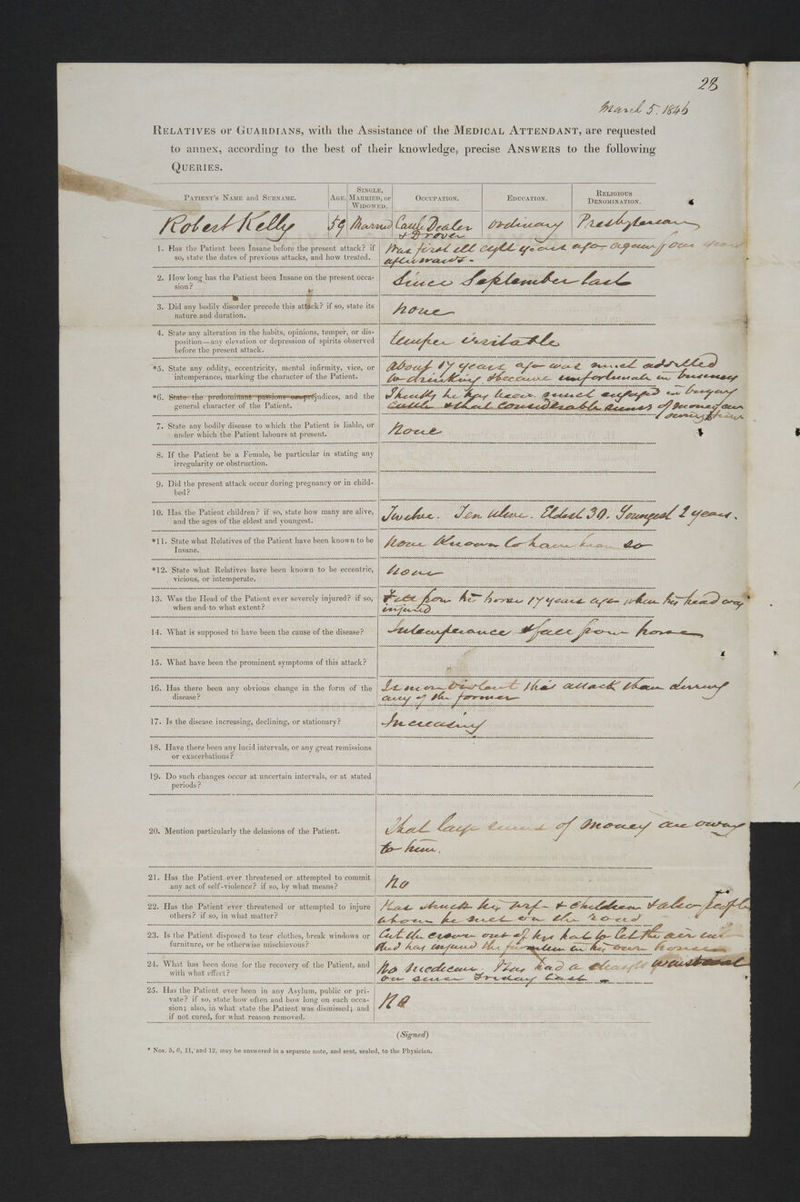 28
March 5. 1846
RELATIVES or GUARDIANS, with the Assistance of the MEDICAL ATTENDANT, are requested
to annex, according to the best of their knowledge, precise ANSWERS to the following
QUERIES.
PATIENT'S NAME and SURNAME. AGE. SINGLE, MARRIED, or WIDOWED. OCCUPATION. EDUCATION. RELIGIOUS DENOMINATION.
Robert Kelly 59 Married Cattle Dealer & Drover Ordinary Presbyterian
1. Has the Patient been Insane before the present attack? if
so, state the dates of previous attacks, and how treated.
Was first ill eight years ago again four years
afterwards.
2. How long has the Patient been Insane on the present occa-
sion?
Since September last
3. Did any bodily disorder precede this attack? if so, state its
nature and duration.
None
4. State any alteration in the habits, opinions, temper, or dis-
position—any elevation or depression of spirits observed
before the present attack.
Temper irritable
*5. State any oddity, eccentricity, mental infirmity, vice, or
intemperance, marking the character of the Patient.
About 17 years ago was much addicted
to drinking & became unfortunate in business
*6. State the predominant passions or prejudices, and the
general character of the Patient.
Thinks he has been much engaged in buying
cattle & that considerable sums of money are
owing him
7. State any bodily disease to which the Patient is liable, or
under which the Patient labours at present.
None
8. If the Patient be a Female, be particular in stating any
irregularity or obstruction.
9. Did the present attack occur during pregnancy or in child-
bed?
10. Has the Patient children? if so, state how many are alive,
and the ages of the eldest and youngest.
Twelve. Ten alive. Eldest 30. Youngest 2 years.
*11. State what Relatives of the Patient have been known to be
Insane.
None known to have been so
*12. State what Relatives have been known to be eccentric,
vicious, or intemperate.
None
13. Was the Head of the Patient ever severely injured? if so,
when and to what extent?
Fell from his horse 17 years ago when his head was
injured
14. What is supposed to have been the cause of the disease?
Intemperance & fall from horse
15. What have been the prominent symptoms of this attack?
16. Has there been any obvious change in the form of the
disease?
Is more violent this attack than during
any of the former
17. Is the disease increasing, declining, or stationary?
Increasing
18. Have there been any lucid intervals, or any great remissions
or exacerbations?
19. Do such changes occur at uncertain intervals, or at stated
periods?
20. Mention particularly the delusions of the Patient.
That large sums of money are owing
to him.
21. Has the Patient ever threatened or attempted to commit
any act of self-violence? if so, by what means?
No
22. Has the Patient ever threatened or attempted to injure
others? if so, in what matter?
Has struck his wife & children & also people
whom he met on the road
23. Is the Patient disposed to tear clothes, break windows or
furniture, or be otherwise mischievous?
Cut the crown out of his hat to let the air in
And has injured the furniture in his own house
24. What has been done for the recovery of the Patient, and
with what effect?
No medicine. Has had a strait waistcoat
on since Friday last
25. Has the Patient ever been in any Asylum, public or pri-
vate? if so, state how often and how long on each occa-
sion; also, in what state the Patient was dismissed; and
if not cured, for what reason removed.
No
(Signed)
* Nos. 5, 6, 11, and 12, may be answered in a separate note, and sent, sealed, to the Physician.